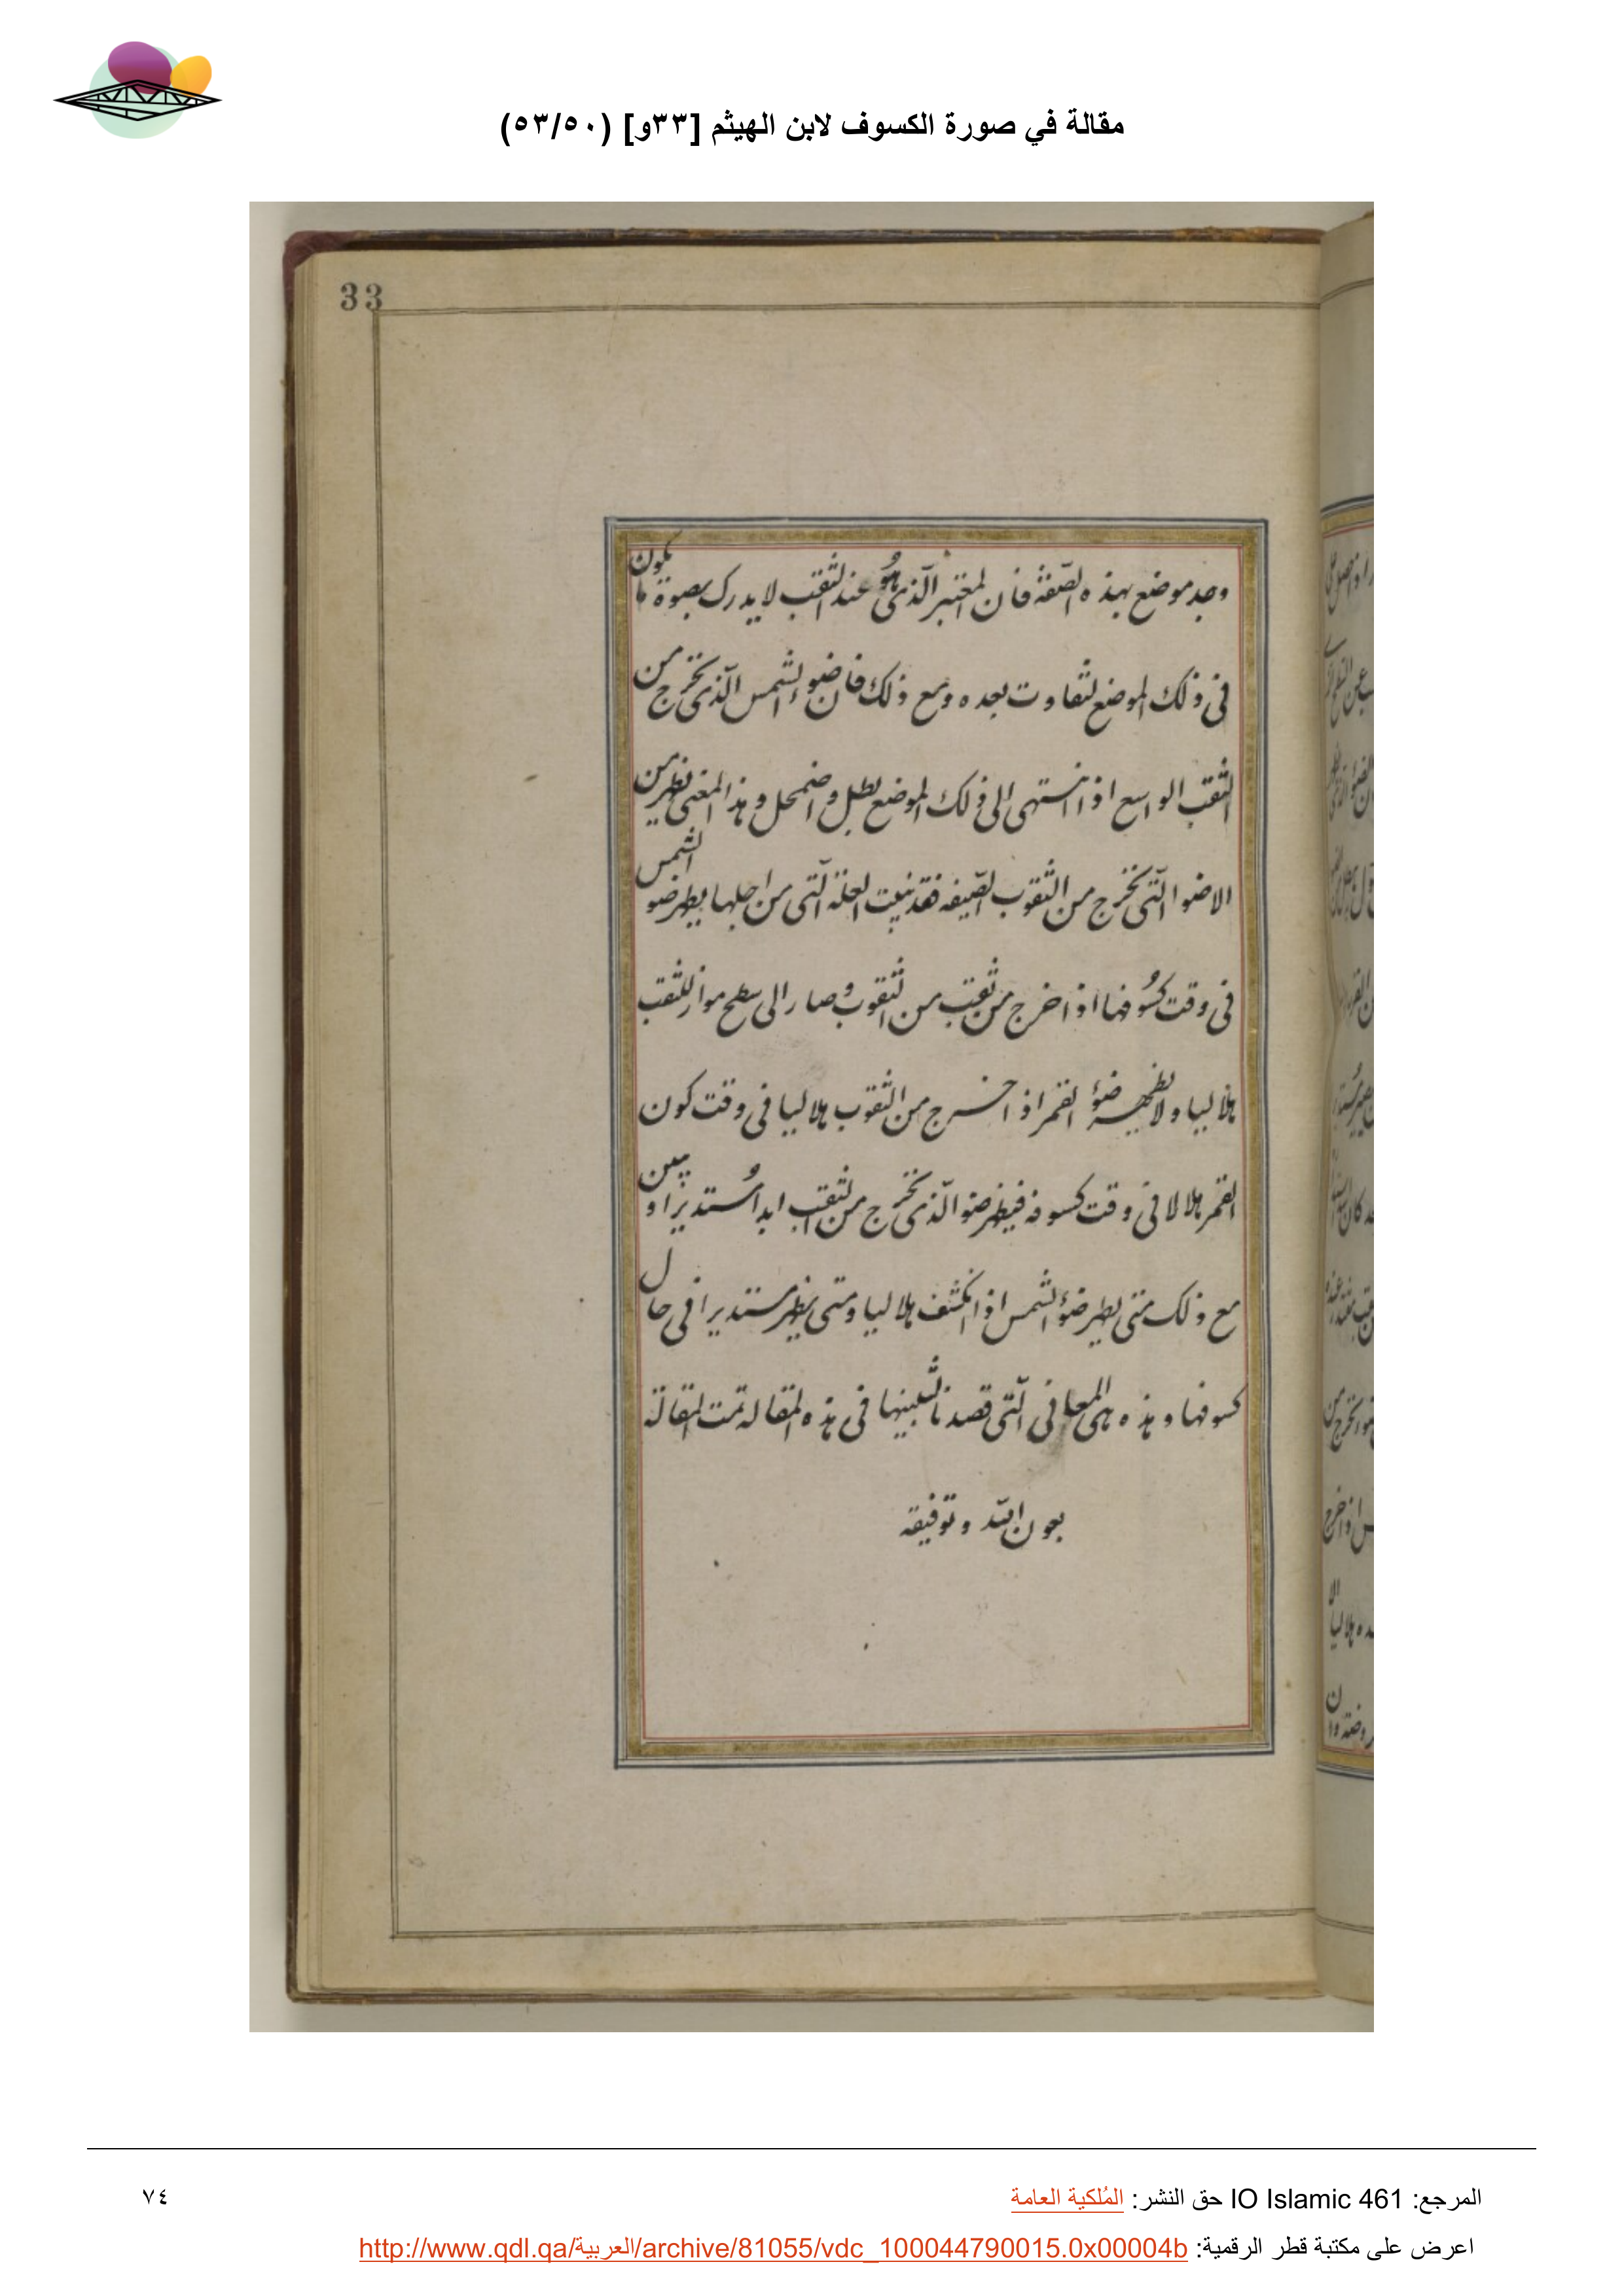 مقالة في صورة الكسوف لابن الهيثم [٣٣و] (٥٣/٥٠)
33
وجد موضع بهذه الصفة فان المعتبر الذى هو عند الثقب لا يدرك بصوة ما يكون
فى ذلك الموضع لتفاوت بعده ومع ذلك فان ضوء الشمس الذى تخرج من
الثقب الواسع اذا انتهى الى ذلك الموضع بطل واضمحل وهذا المعنى نظير من
الاضوا التى تخرج من الثقوب الضيفه فقد تبينت العلة التى من اجلها يظهر ضو الشمس
فى وقت كسوفها اذا خرج من ثقب من الثقوب وصار الى سطح مواز للثقب
هلاليا ولا يظهر ضوؤ القمر اذا خرج من الثقوب هلاليا فى وقت كون
القمر هلالا فى وقت كسوفه فيظهر ضو الذى تخرج من الثقب ابدا مستديرا و يبين
مع ذلك متى يظهر ضوؤ الشمس اذا انكشف هلاليا ومتى يظهر مستديرا فى حال
كسوفها وهذه هى المعانى التى قصدنا لتبينها فى هذه المقاله تمت المقالة
بعون الله وتوفيقه
المرجع: IO Islamic 461 حق النشر: المُلكية العامة
٧٤
اعرض على مكتبة قطر الرقمية: http://www.qdl.qa/العربية/archive/81055/vdc_100044790015.0x00004b